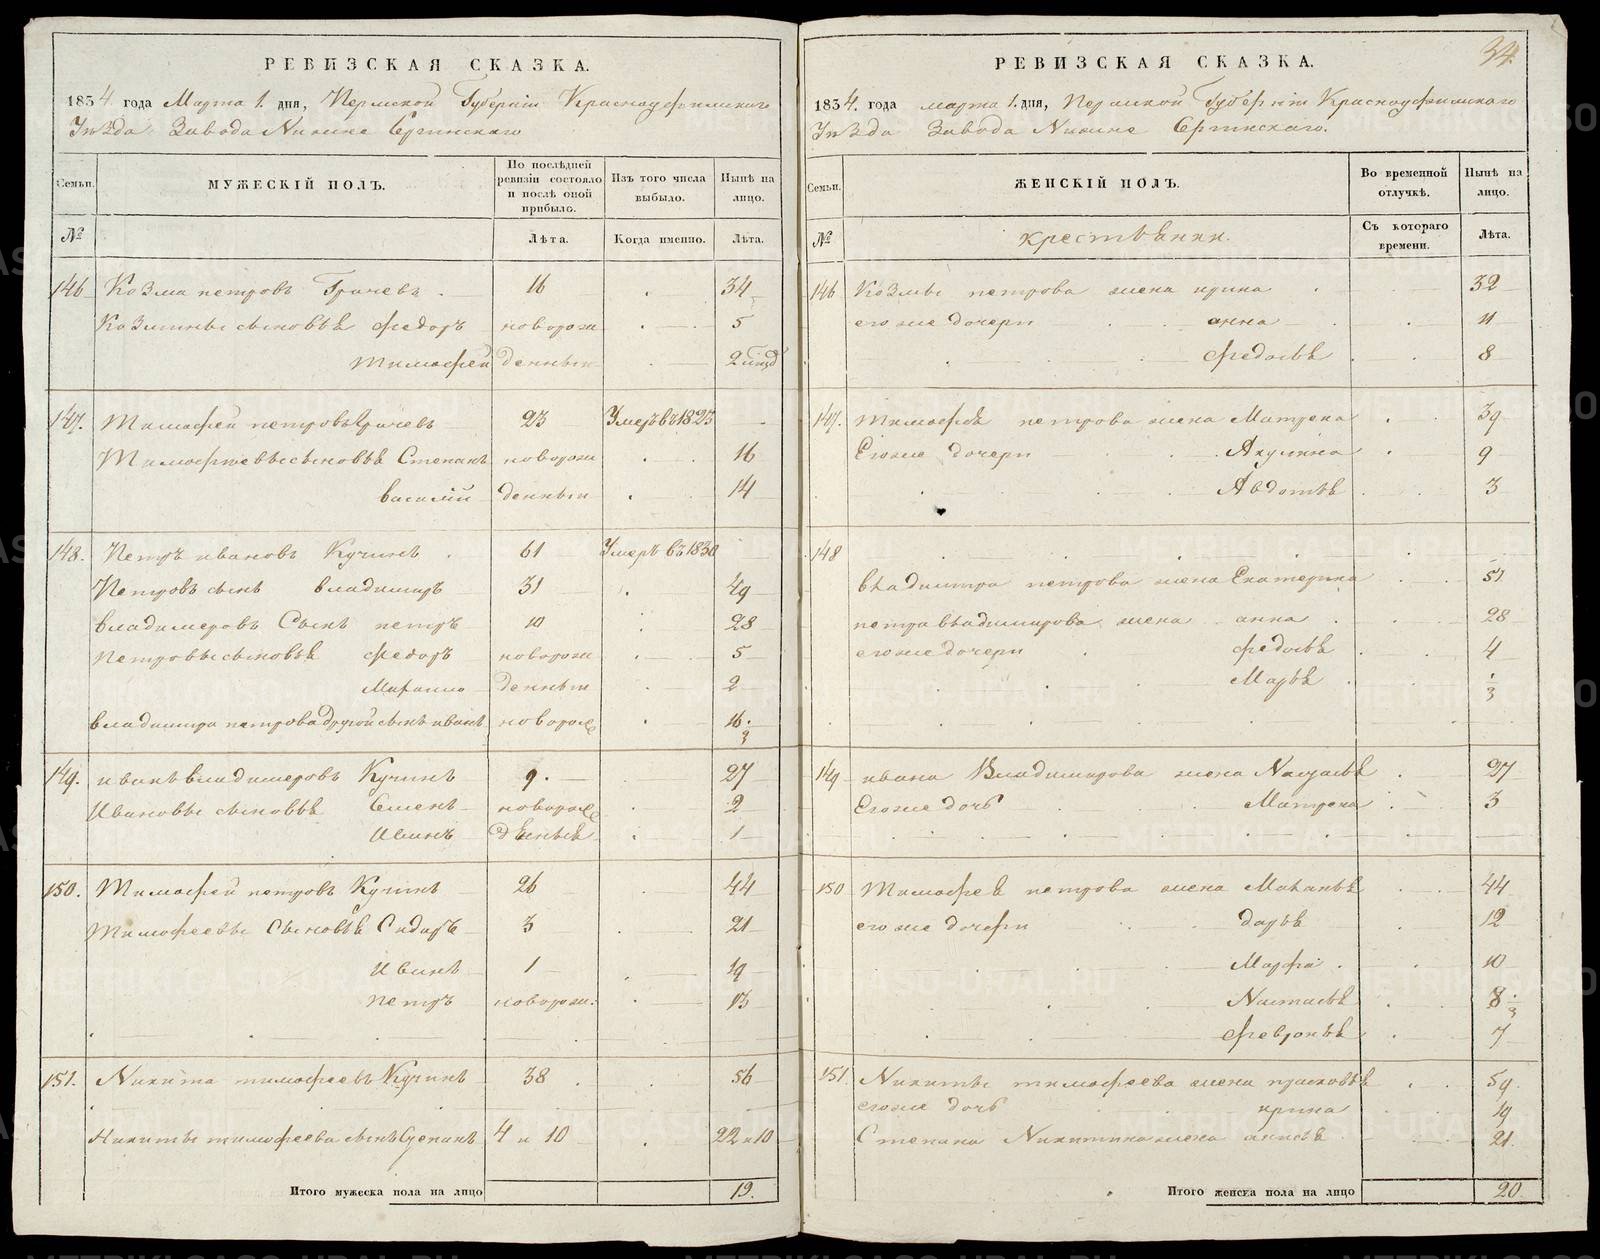 РЕВИЗСКАЯ СКАЗКА.
1834. года Марта 1. дня, Пермской Губернiи Красноуфимскаго
Уѣзда Завода Нижне Сергинскаго
Семьи.
МУЖЕСКIЙ ПОЛЪ.
По послѣдней ревизiи состояло и послѣ оной прибыло.
Изъ того числа выбыло.
Нынѣ на лицо.
№
Лѣта.
Когда именно.
Лѣта.
146 Козма петровъ Грачевъ 16 34
Козмины сыновья федоръ новорож 5
тимофей денныи 2
147. Тимофей петровъ Грачевъ 23 Умеръ въ 1825
Тимофѣевы сыновья Степанъ новорож 16
василiй денныи 14
148. Петръ ивановъ Кучинъ 61 Умеръ въ 1830
Петровъ сынъ владимиръ 31 49
владимеровъ Сынъ петръ 10 28
Петровы сыновья федоръ новорож 5
денныи 2
владимира петрова другой сынъ иванъ новорож 16
149. иванъ владимеровъ Кучинъ 9. 27
Ивановы сыновья Семенъ новорож 2
Иванъ денные 1
150. Тимофей петровъ Кучинъ 26 44
Тимофеевы Сыновья Сидоръ 3 21
Иванъ 1 19
петръ новорож: 13
151. Никита тимофеевъ Кучинъ 38 56
Никиты тимофеева сынъ Степанъ 4 и 10 22 и 10
Итого мужеска пола на лицо 19.
34.
РЕВИЗСКАЯ СКАЗКА.
1834. года марта 1. дня, Пермской Губернiи Красноуфимскаго
Уѣзда Завода Нижне Сергинскаго.
Семьи.
ЖЕНСКIЙ ПОЛЪ.
Во временной отлучкѣ.
Нынѣ на лицо.
№
крестьянки.
Съ котораго времени.
Лѣта.
146 Козмы петрова жена ирина 32
его же дочери анна 11
федосья 8
147. тимофея петрова жена Матрена 39
Его же дочери Акулина 9
Авдотья 3
148
владимира петрова жена Екатерина 51
петра владимирова жена анна 28
его же дочери федосья 4
Марья 1/3
149 ивана Владимирова жена Наталья 27
Его же дочь Матрена 3
150 Тимофея петрова жена Маланья 44
его же дочери дарья 12
Марфа 10
Настасья 8
февронья 7
151 Никиты тимофеева жена прасковья 59.
его же дочь ирина 19
Степана Никитина жена анисья 21.
Итого женска пола на лицо 20.
METRIKI.GASO-URAL.RU